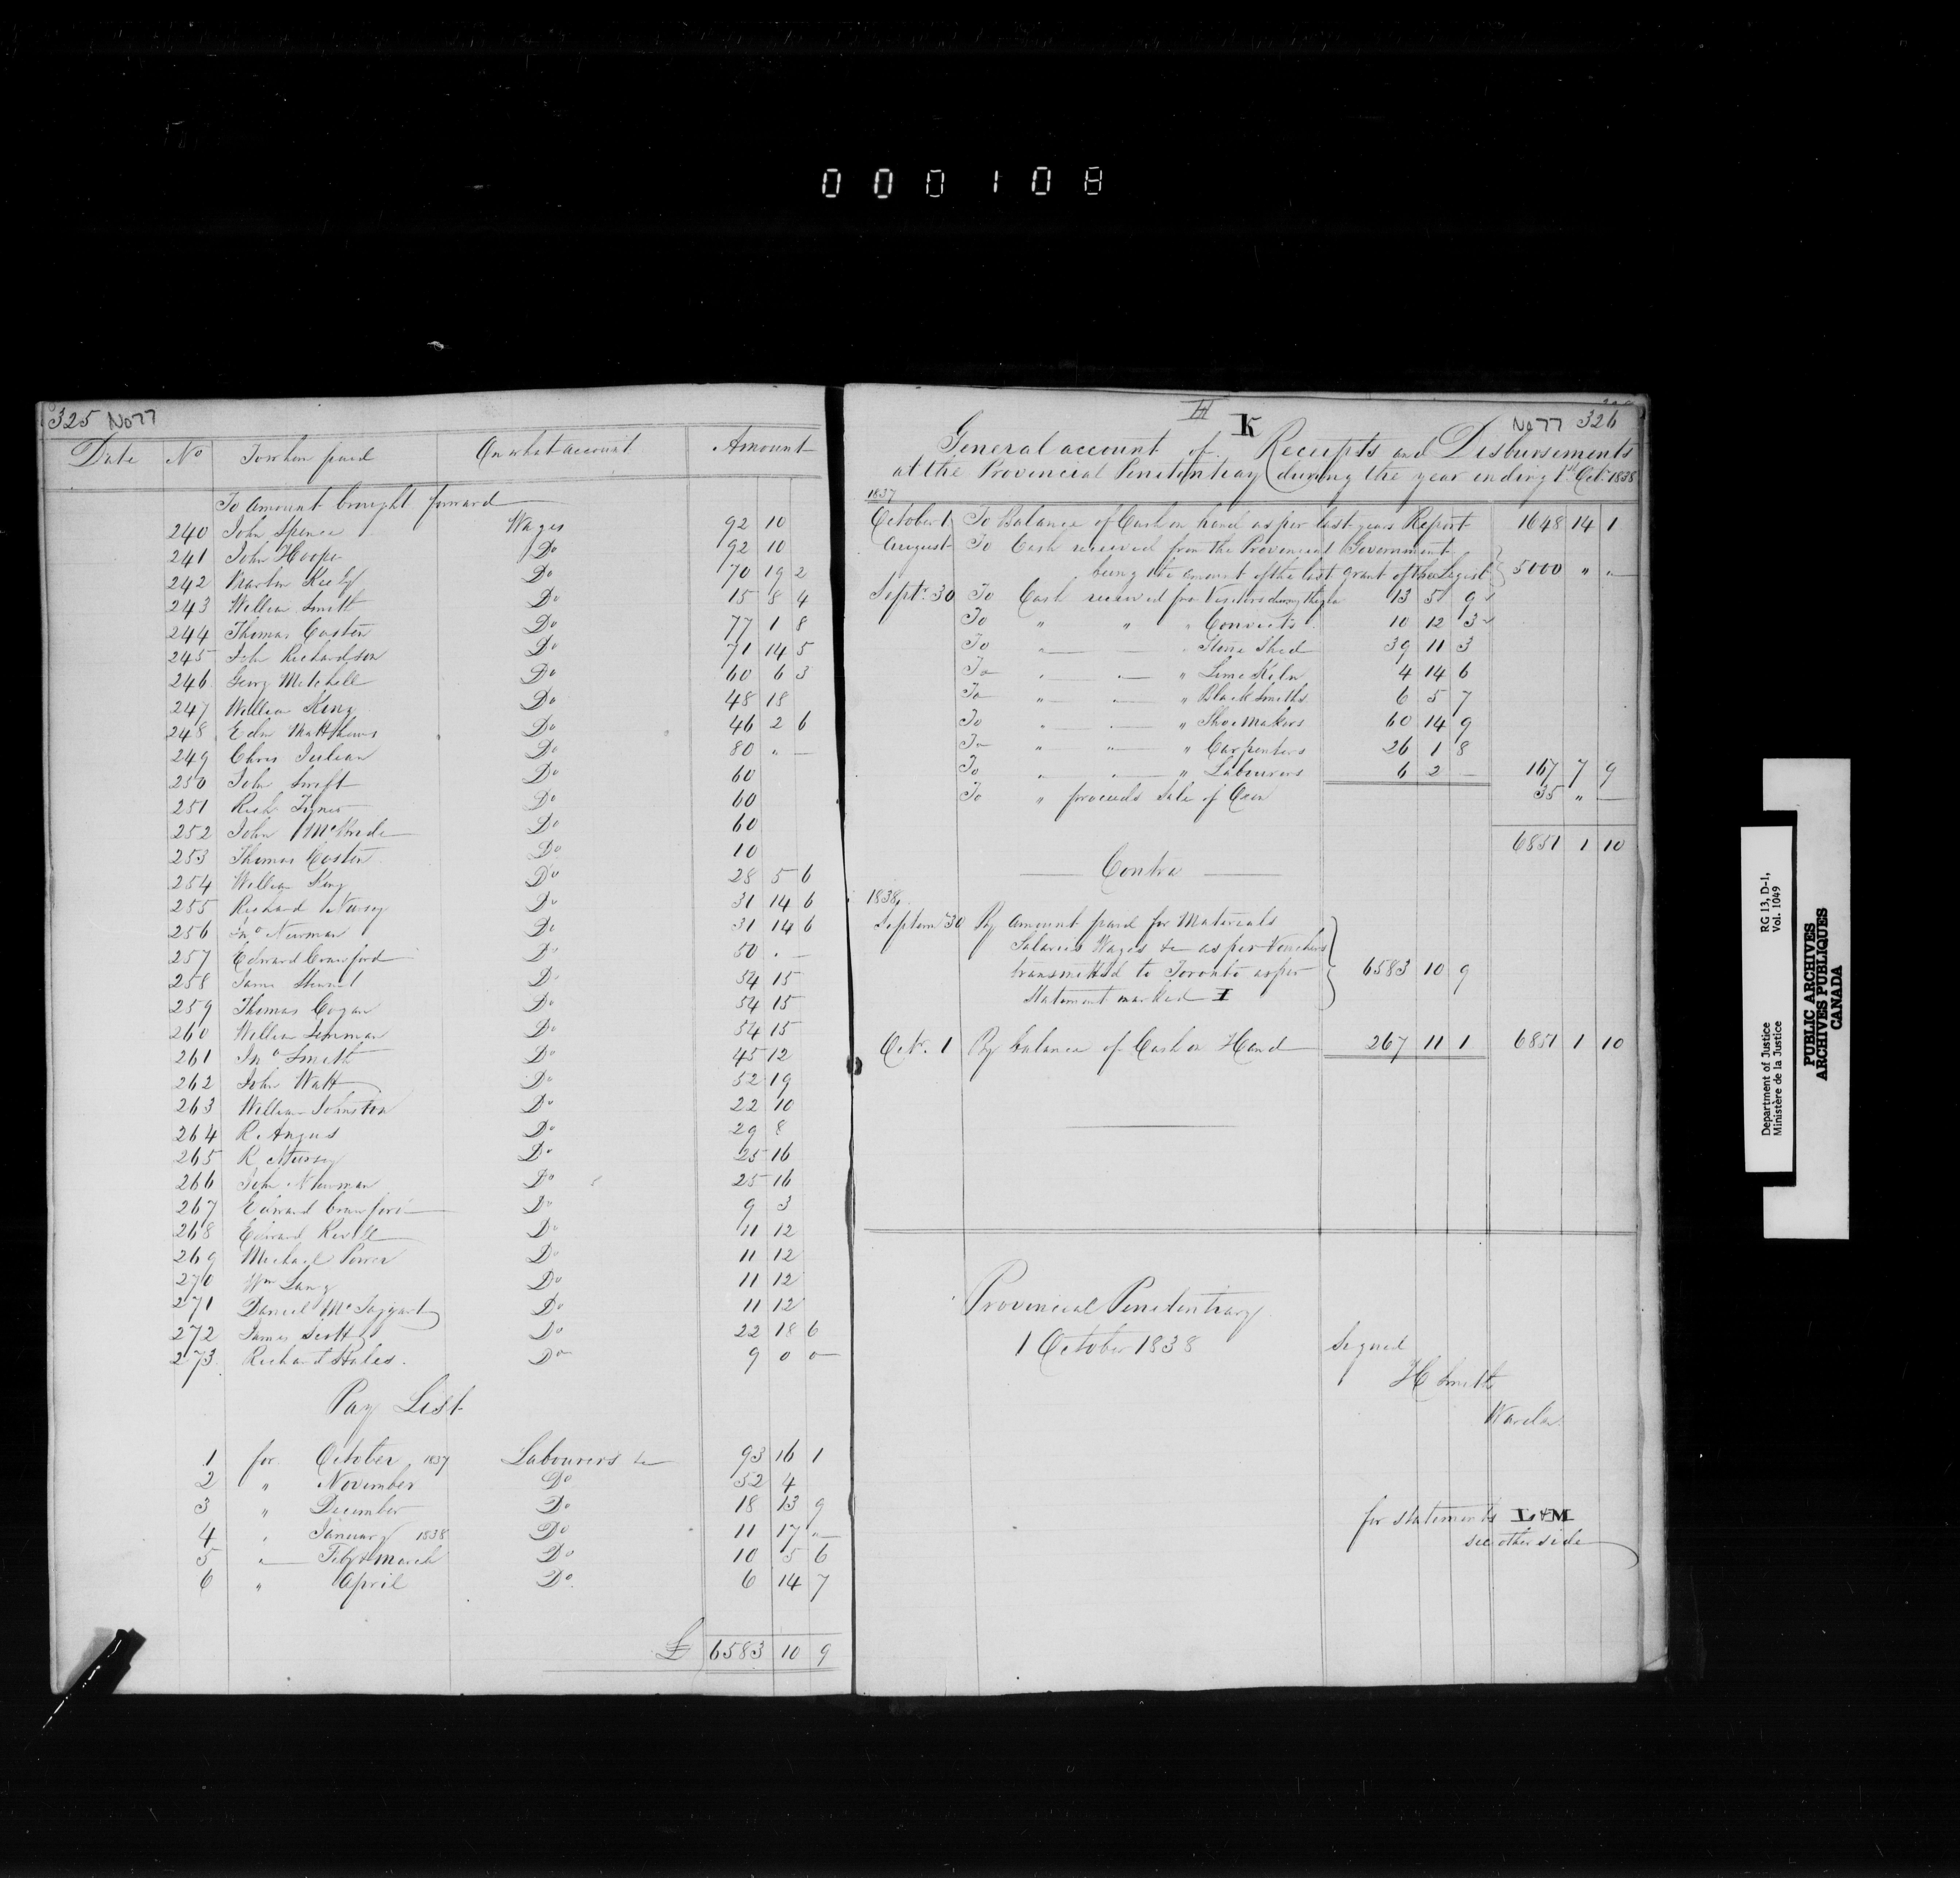 000108
325 No 77
Date No To whom paid On what account Amount
To Amount brought forward
240 John Spence Wages 92 10
241 John Hooper Do 92 10
242 Martin Keely Do 70 19 2
243 William Smith Do 15 8 4
244 Thomas Costen Do 77 1 8
245 John Richardson Do 71 14 5
246 Georg Mitchell Do 60 6 3
247 William King Do 48 18
248 Edw Matthews Do 46 2 6
249 Chris Julian Do 80 " —
250 John Swift Do 60
251 Rich Do 60
252 John McBride Do 60
253 Thomas Costen Do 10
254 William King Do 28 5 6
255 Richard Nursey Do 31 14 6
256 Jno Newman Do 31 14 6
257 Edward Crawford Do 50 . —
258 James Do 54 15
259 Thomas Cogan Do 54 15
260 William Do 54 15
261 Jno Smith Do 45 12
262 John Watt Do 52 19
263 William Johnston Do 22 10
264 R. Angus Do 29 8
265 R Nursey Do 25 16
266 John Newman Do 25 16
267 Edward Crawford Do 9 3
268 Edward Do 11 12
269 Michael Power Do 11 12
270 Wm Lang Do 11 12
271 Daniel McTaggart Do 11 12
272 James Scott Do 22 18 6
273 Richard Do 9 0 0
Pay List
1 for October 1837 Labourers &c 93 16 1
2 " November Do 52 4
3 " December Do 18 13 9
4 " January 1838 Do 11 17 "
5 " Feby & March Do 10 5 6
6 " April Do 6 14 7
£ 6583 10 9
H K No 77 326
General account of Receipts and Disbursements
at the Provincial Penitentiary during the year ending 1st Octr 1838
1837
October 1 To Balance of Cash on hand as per last years Report 1648 14 1
August To Cash received from the Provincial Government
being the amount of the last grant of the Legist 5000 " "
Septr. 30 To Cash received for Visitors during the 13 5 9
To " " " Convicts 10 12 3
To " — " Stone Shed 39 11 3
To " — " Lime Kiln 4 14 6
To " — " Black Smiths 6 5 7
To " — " Shoe Makers 60 14 9
To " — " Carpenters 26 1 8
To " — " Labourers 6 2 — 167 7 9
To " proceeds Sale of Oxen 35 " —
6851 1 10
Contra
1838
Septem 30 By amount paid for Materials
Salaries Wages &c as per Vouchers
transmitted to Toronto as per 6583 10 9
Statement marked I
Octr. 1 By balance of Cash on Hand 267 11 1 6851 1 10
Provincial Penitentiary
1 October 1838 Signed
H Smith
Warden
for statements L & M
see other side
Department of Justice RG 13, D-1,
Ministère de la Justice Vol. 1049
PUBLIC ARCHIVES
ARCHIVES PUBLIQUES
CANADA